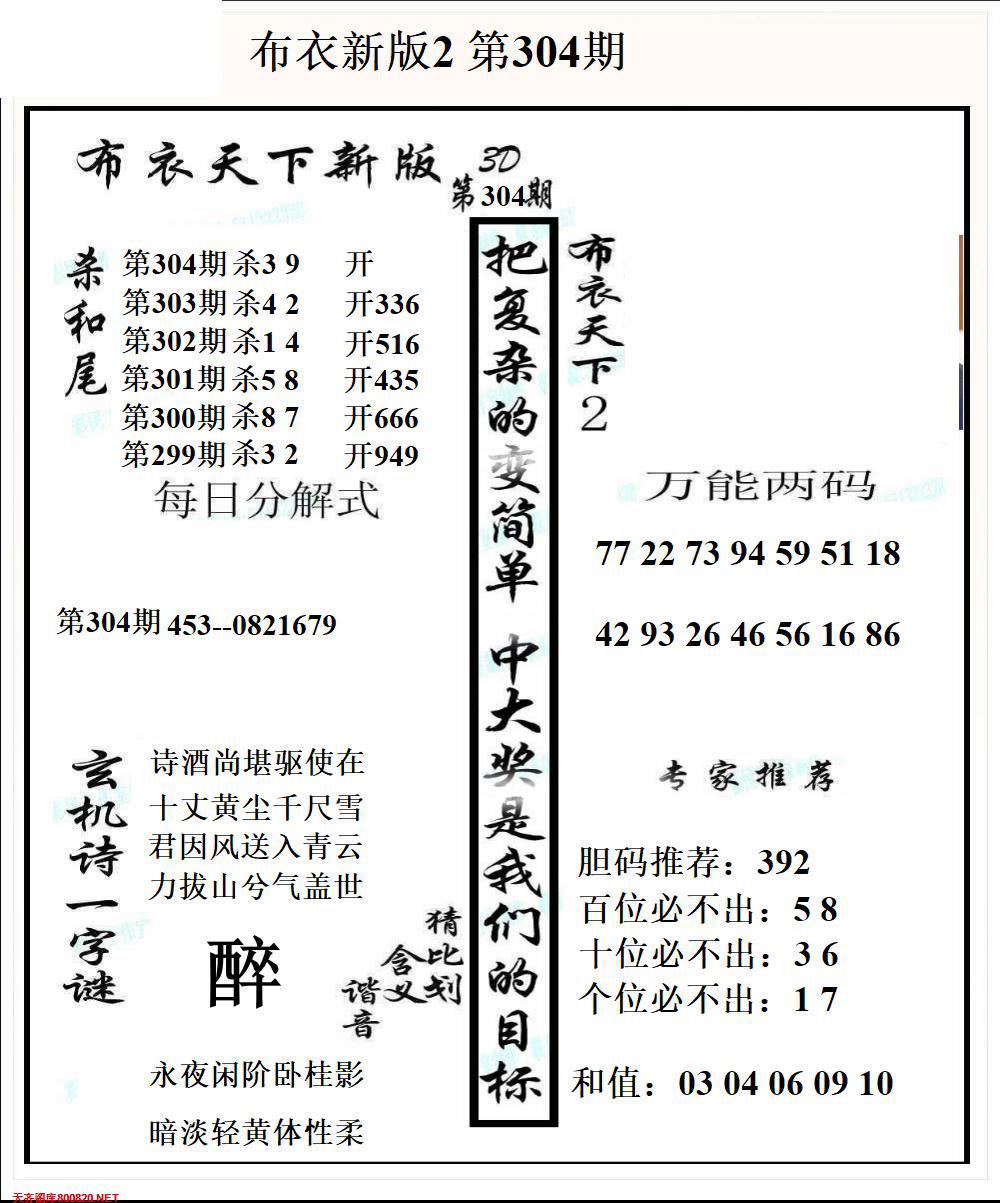 布衣新版2 第304期
布衣天下新版 3D
第304期
杀和尾
第304期 杀3 9 开
第303期 杀4 2 开336
第302期 杀1 4 开516
第301期 杀5 8 开435
第300期 杀8 7 开666
第299期 杀3 2 开949
每日分解式
第304期 453--0821679
玄机诗一字谜
诗酒尚堪驱使在
十丈黄尘千尺雪
君因风送入青云
力拔山兮气盖世
醉
猜比划
含义
谐音
永夜闲阶卧桂影
暗淡轻黄体性柔
把复杂的变简单 中大奖是我们的目标
布衣天下2
万能两码
77 22 73 94 59 51 18
42 93 26 46 56 16 86
专家推荐
胆码推荐：392
百位必不出：5 8
十位必不出：3 6
个位必不出：1 7
和值：03 04 06 09 10
天齐图库800820.NET